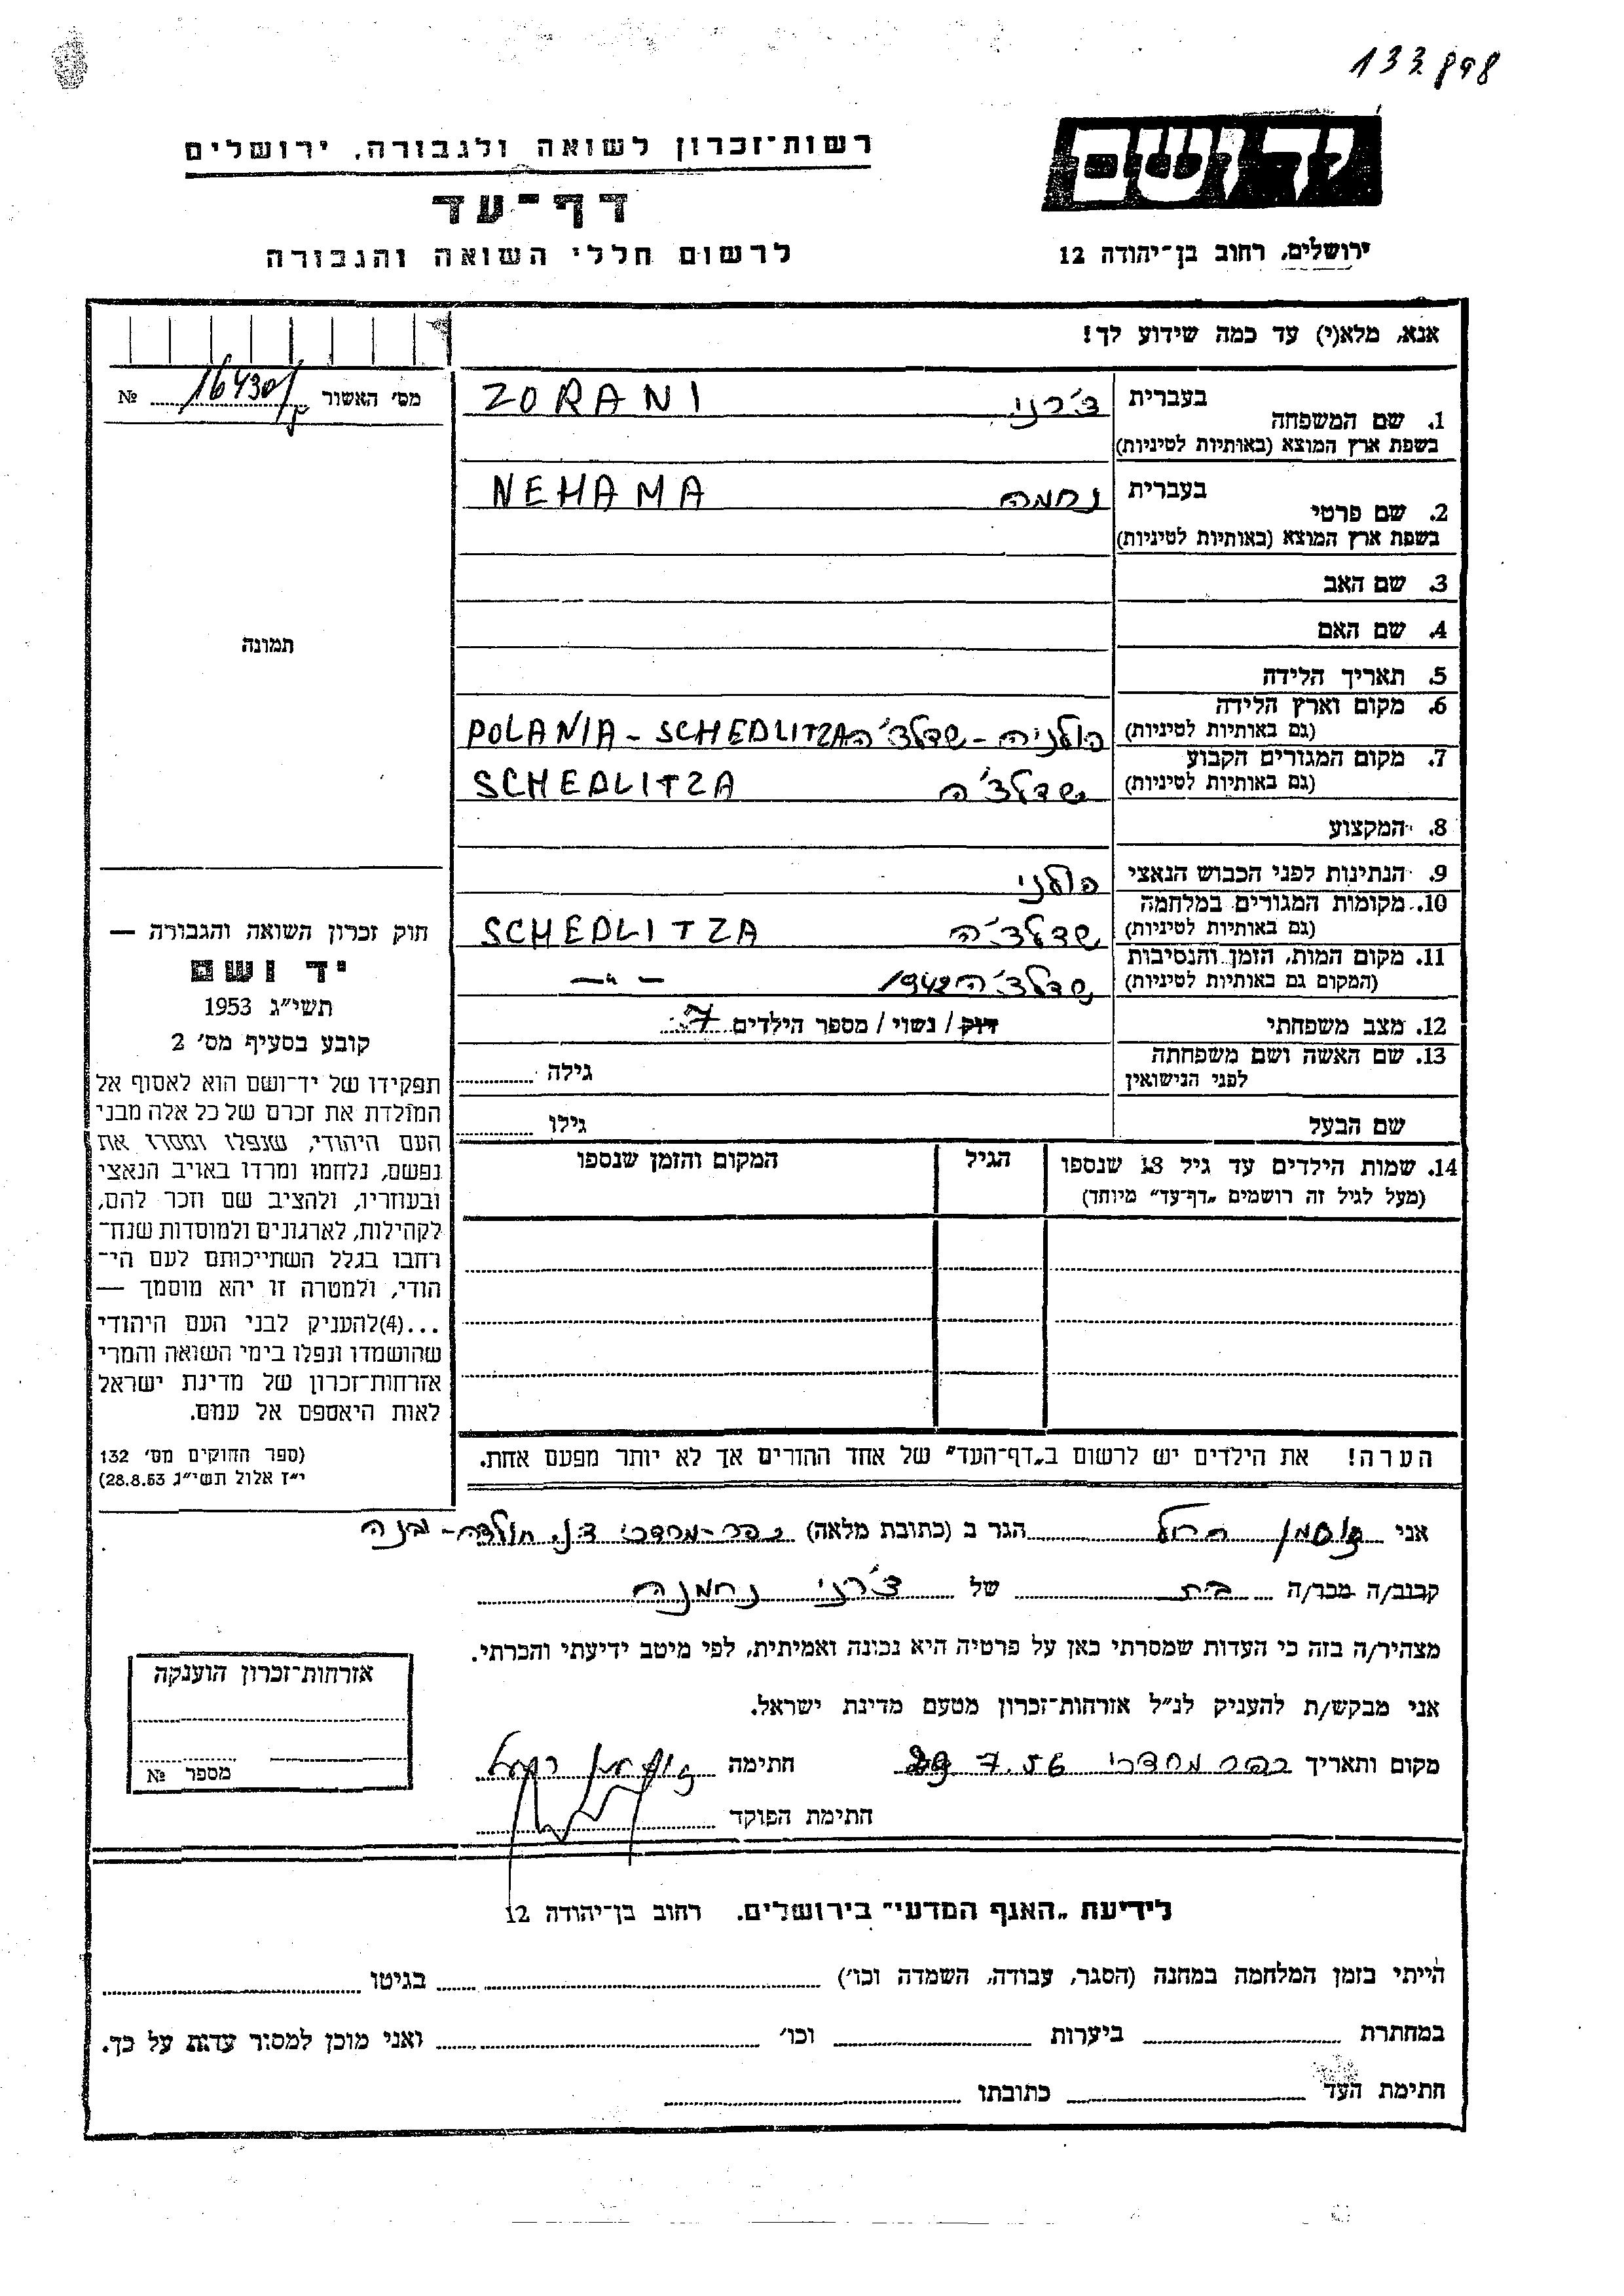 133898
יד ושם
ירושלים, רחוב בן־יהודה 12
רשות־זכרון לשואה ולגבורה, ירושלים
דף־עד
לרשום חללי השואה והגבורה
אנא, מלא(י) עד כמה שידוע לך!
מס׳ האשור 16430 №
תמונה
1. שם המשפחה בעברית צ׳רני ZORANI
בשפת ארץ המוצא (באותיות לטיניות)
2. שם פרטי בעברית נחמה NEHAMA
בשפת ארץ המוצא (באותיות לטיניות)
3. שם האב
4. שם האם
5. תאריך הלידה
6. מקום וארץ הלידה
(גם באותיות לטיניות) פולניה - שדלצ׳ה POLANIA - SCHEDLITZA
7. מקום המגורים הקבוע
(גם באותיות לטיניות) שדלצ׳ה SCHEDLITZA
8. המקצוע
9. הנתינות לפני הכבוש הנאצי פולני
10. מקומות המגורים במלחמה
(גם באותיות לטיניות) שדלצ׳ה SCHEDLITZA
11. מקום המות, הזמן והנסיבות
(המקום גם באותיות לטיניות) שדלצ׳ה 1942 — " —
12. מצב משפחתי רוק / נשוי / מספר הילדים 7
13. שם האשה ושם משפחתה
לפני הנישואין גילה
שם הבעל גילו
14. שמות הילדים עד גיל 18 שנספו הגיל המקום והזמן שנספו
(מעל לגיל זה רושמים „דף־עד" מיוחד)
הערה! את הילדים יש לרשום ב„דף־העד" של אחד ההורים אך לא יותר מפעם אחת.
חוק זכרון השואה והגבורה —
יד ושם
תשי״ג 1953
קובע בסעיף מס׳ 2
תפקידו של יד־ושם הוא לאסוף אל
המולדת את זכרם של כל אלה מבני
העם היהודי, שנפלו ומסרו את
נפשם, נלחמו ומרדו באויב הנאצי
ובעוזריו, ולהציב שם וזכר להם,
לקהילות, לארגונים ולמוסדות שנח־
רבו בגלל השתייכותם לעם הי־
הודי, ולמטרה זו יהא מוסמך —
...(4) להעניק לבני העם היהודי
שהושמדו ונפלו בימי השואה והמרי
אזרחות־זכרון של מדינת ישראל
לאות היאספם אל עמם.
(ספר החוקים מס׳ 132
י״ז אלול תשי״ג 28.8.53)
אני רחל הגר ב (כתובת מלאה) כפר-מרדכי ד.נ. חולדה -
קרוב/ה מכר/ה בת של צ׳רני נחמה
מצהיר/ה בזה כי העדות שמסרתי כאן על פרטיה היא נכונה ואמיתית, לפי מיטב ידיעתי והכרתי.
אני מבקש/ת להעניק לנ״ל אזרחות־זכרון מטעם מדינת ישראל.
מקום ותאריך כפר מרדכי 7.56 חתימה רחל
חתימת הפוקד
אזרחות־זכרון הוענקה
מספר №
לידיעת „האגף המדעי" בירושלים. רחוב בן־יהודה 12
הייתי בזמן המלחמה במחנה (הסגר, עבודה, השמדה וכו׳) בגיטו
במחתרת ביערות וכו׳ ואני מוכן למסור עדות על כך.
חתימת העד כתובתו